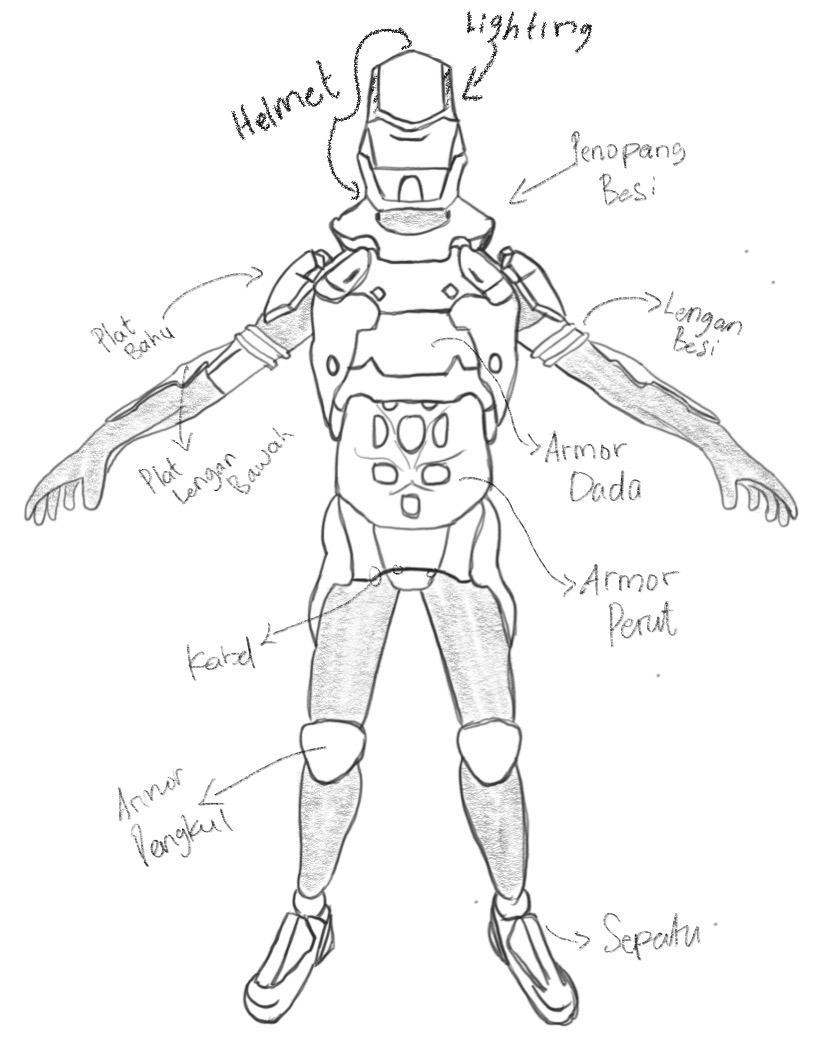 Lighting
Helmet
Penopang
Besi
Plat
Bahu
Lengan
Besi
Plat
Lengan
Bawah
Armor
Dada
Armor
Perut
Kabel
Armor
Dengkul
Sepatu